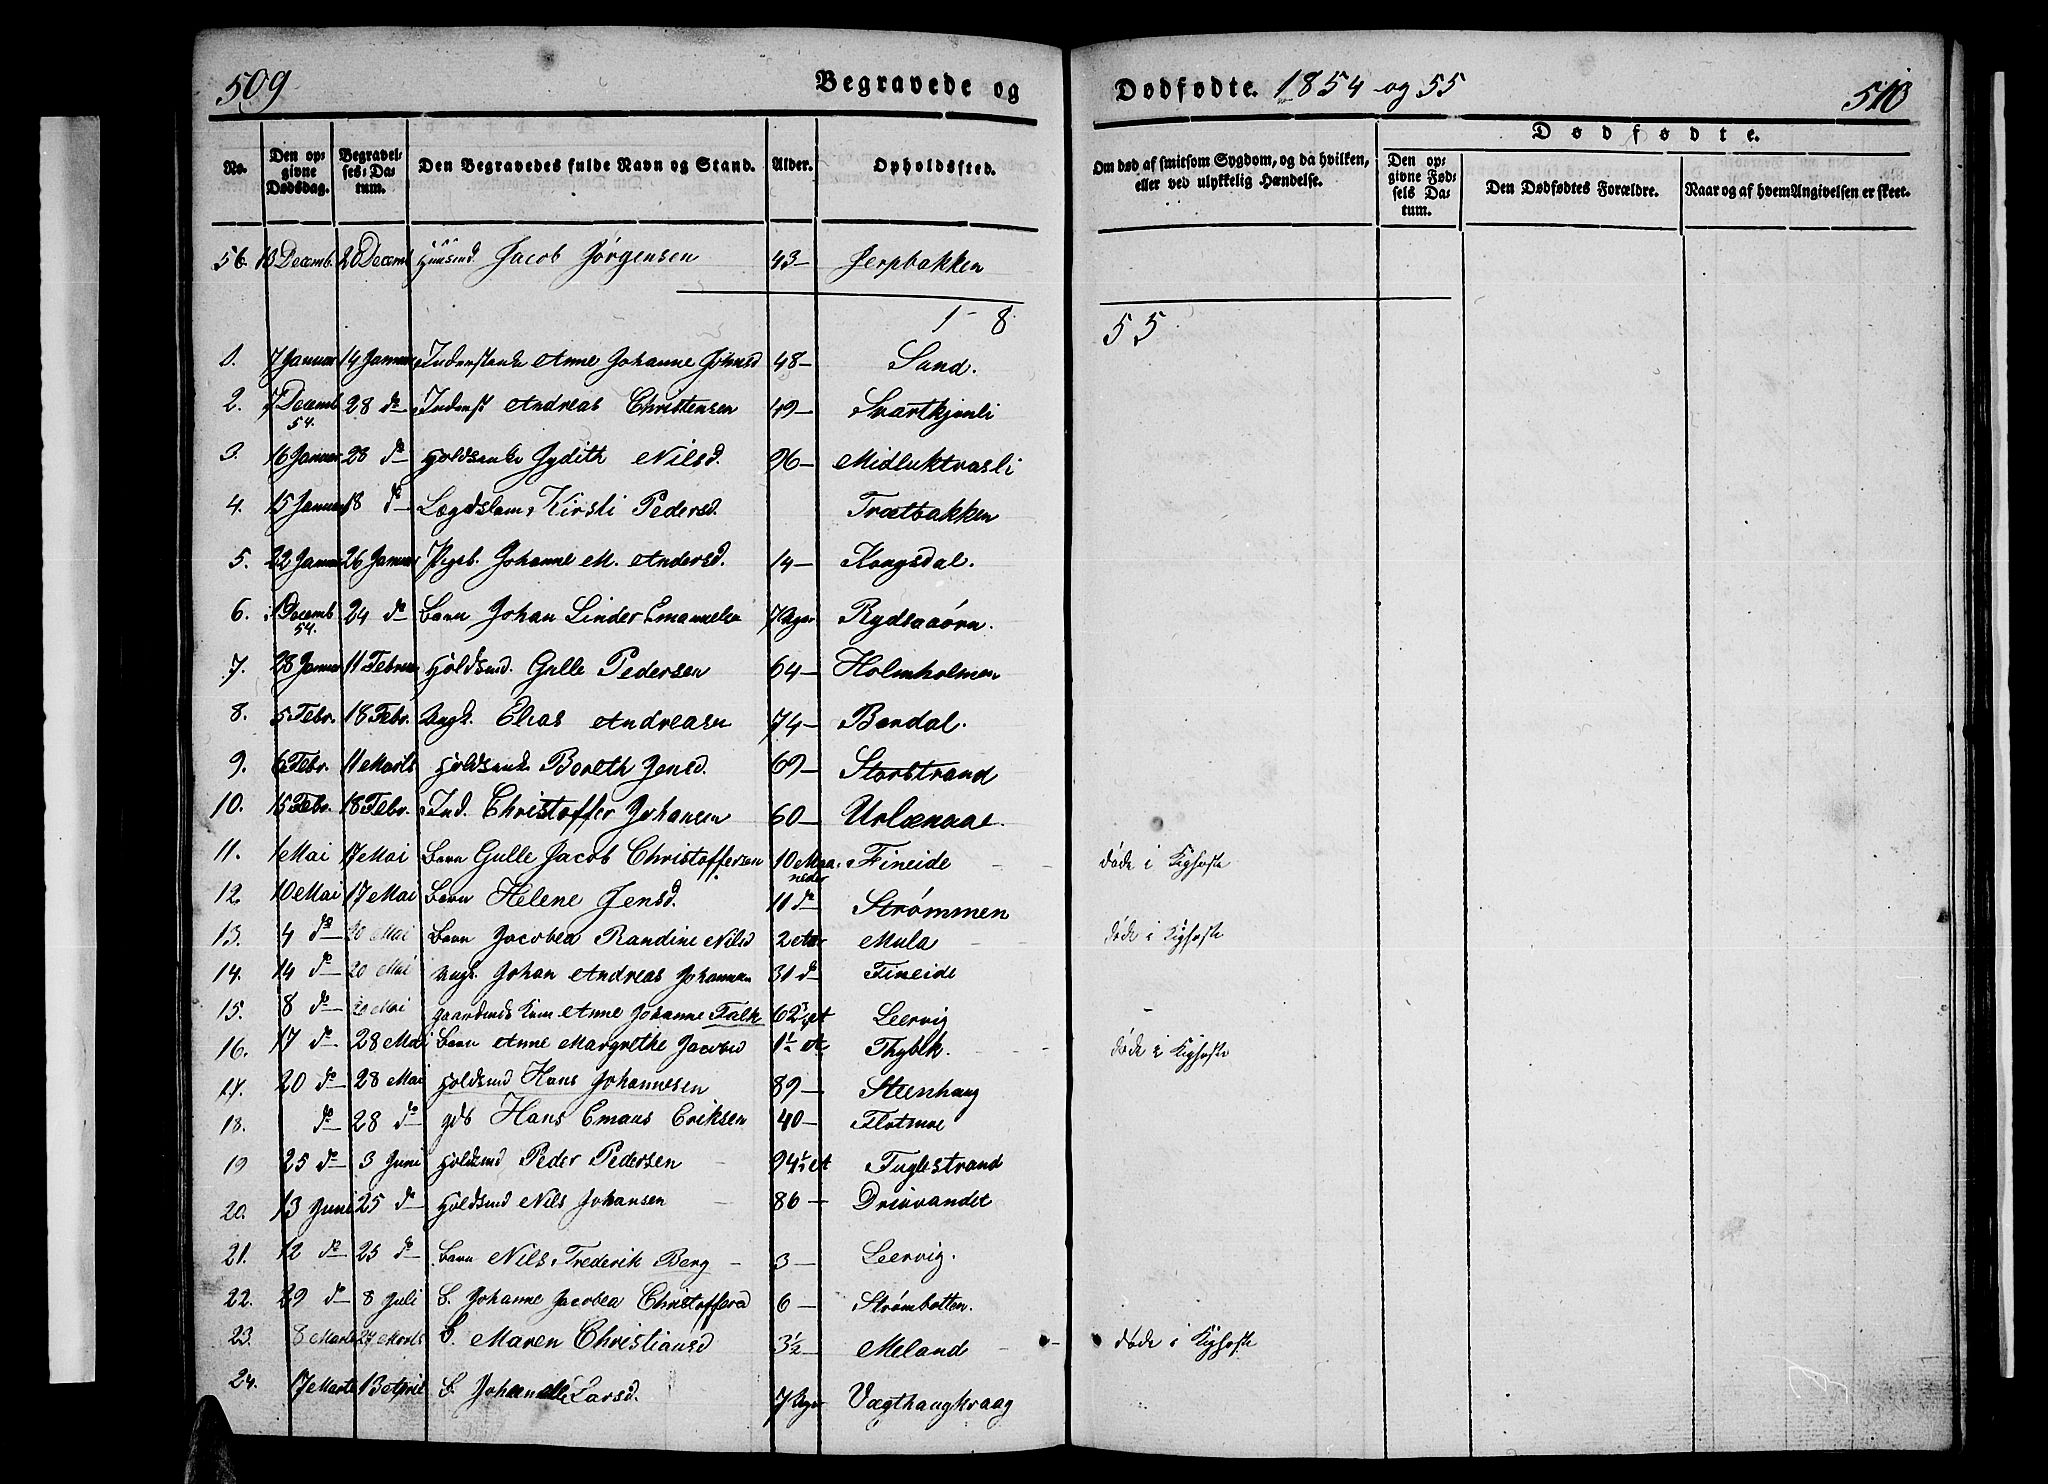 509
Begravede og
Dødfødte. 1854 og 55
510
No.
Den opgivne Dødsdag.
Begravelses-Datum.
Den Begravedes fulde Navn og Stand.
Alder.
Opholdssted.
Om død af smitsom Sygdom, og da hvilken, eller ved ulykkelig Hændelse.
Dødfødte.
Den opgivne Fødsels Datum.
Den Dødfødtes Forældre.
Naar og af hvem Angivelsen er skeet.
56. 13 Decemb. 28 Decemb Huusmd Jacob Jørgensen 43 — Jerpbakken
1 - 8 55
1. 7 Januar 14 Januar Inderstenke Anne Johanne Johnsd 48 — Sand.
2. 7 Decemb 54. 28 do Inderst Andreas Christensen 49 — Svartkjønli
3. 16 Januar 28 do Holdsenke Jydith Nilsd. 96 — Midluktvasli
4. 15 Januar 18 do Lægdslem Kirsti Pedersd. Trætbakken
5. 22 Januar 26 Januar Pigeb. Johanne M. Andersd. 14 — Kongsdal.
6. 1 Decemb 54. 24 do Barn Johan Linder Emanuelsen 7 Uger Rydsaaørn.
7. 28 Januar 11 Februar Holdsmd. Gulle Pedersen 64 — Holmholmen
8. 5 Febr. 18 Febr. Ungk. Elias Andreasen 74 — Bardal.
9. 6 Febr. 11 Marts Holdsenke Boreth Jensd. 69 — Storstrand
10. 15 Febr. 18 Febr. Ind. Christoffer Johansen 60 — Urlænaae.
11. 1 Mai 17 Mai Barn Gulle Jacob Christoffersen 10 Maaneder Fineide døde i Kighoste
12. 10 Mai 17 Mai Barn Helene Jensd. 11 do Strømmen
13. 4 do 20 Mai Barn Jacobea Randine Nilsd 2 Aar Mula døde i Kighoste
14. 14 do 20 Mai Ungk. Johan Andreas Johannesen 31 do Fineide
15. 8 do 20 Mai Gaardmds Kone Anne Johanne Falk Leervig
16. 17 do 28 Mai Barn Anne Margrethe Jacobsd 1½ A Thybek. døde i Kighoste
17. 20 do 28 Mai Holdsmd Hans Johannesen 89 — Steenhaug
18. do 28 do Hans Emaus Eriksen 40 — Flotmoe
19 25 do 3 Juni Holdsmd Peder Pedersen Fuglestrand
20. 13 Juni 25 do Holdsmd Nils Johansen 86 — Drivvandet
21. 12 do 25 do Barn Nils Frederik Berg 3 — Leervig.
22. 29 do 8 Juli B. Johanne Jacobea Christoffersd 6 — Strømbotten.
23. 8 Marts 27 Marts B. Maren Christiansd 3½ Meland døde i Kighoste
24. 17 Marts 13 April B. Larsd. 7 Uger Vægthaugkraag